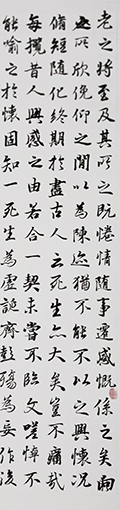 老之將至及其所之既惓情隨事遷感慨係之矣向
之所欣俛仰之間以為陳迹猶不能不以之興懷況
脩短隨化終期於盡古人云死生亦大矣豈不痛哉
每攬昔人興感之由若合一契未嘗不臨文嗟悼不
能喻之於懷固知一死生為虛誕齊彭殤為妄作後